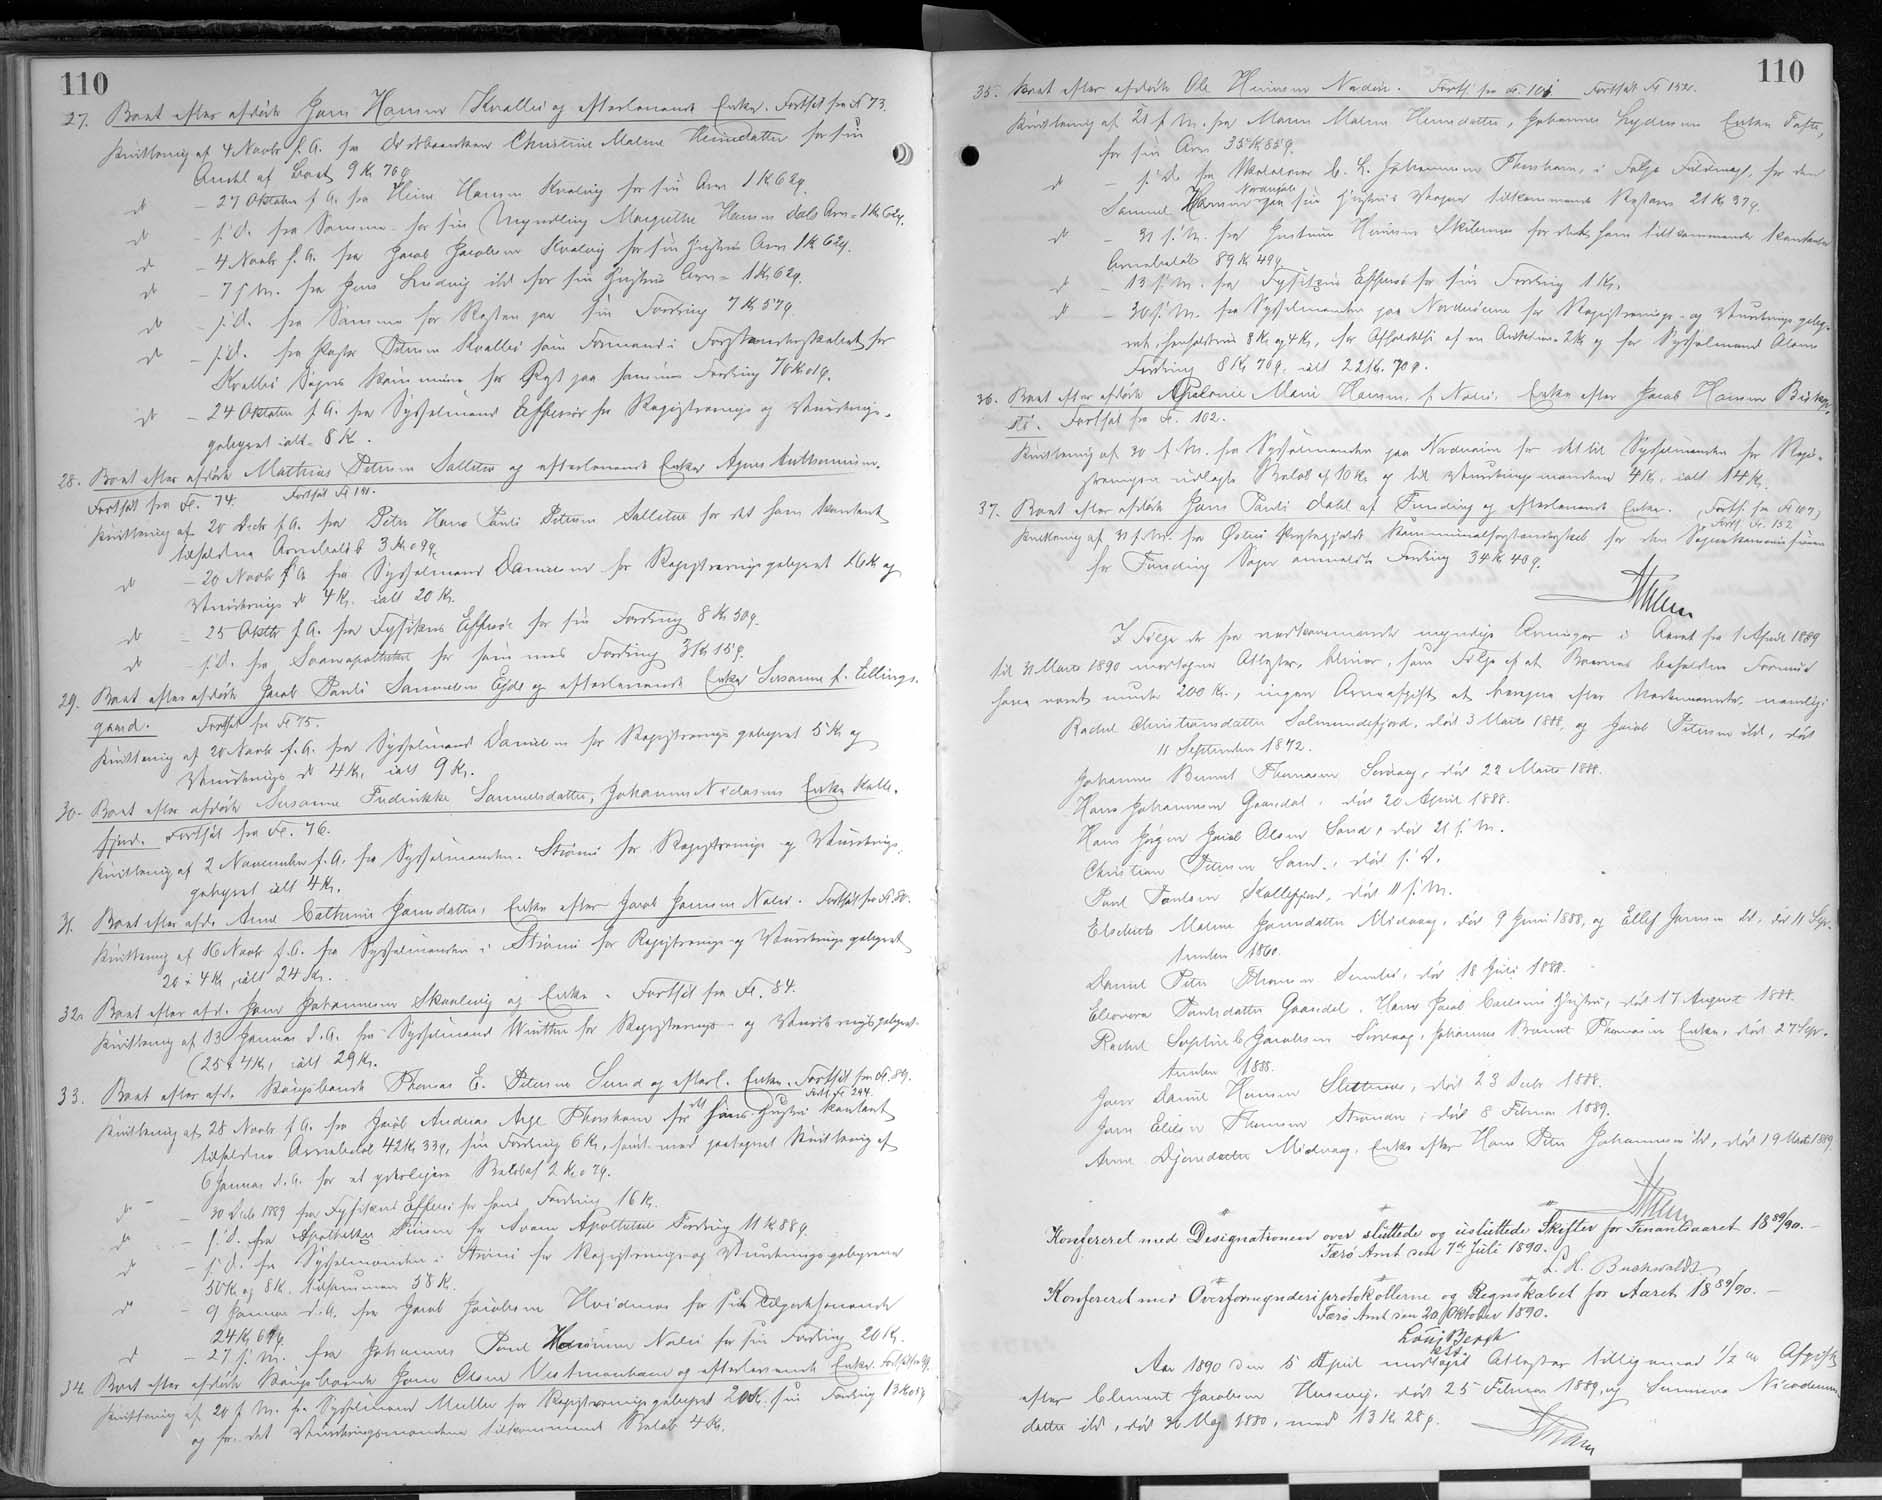 110
27. Boet efter afdøde Jens Hansen Kvallei og efterlevende Enke. Fortsat fra Fl 73.
Kvittering af 4 Novbr f. A. fra Christine Malene Heinedatter for sin
Andel af Boet 9 Kr 76 ø.
dt - 27 Oktober f. A. fra Heine Hansen Kvalvig for sin Arv 1 Kr 62 ø.
dt - s. D. fra Samme for sin Myndling Margrethe Hansen dats Arv = 1 Kr 62 ø.
dt - 4 Novbr f. A. fra Jacob Jacobsen Kvalvig for sin Hustrus Arv 1 Kr 62 ø.
dt - 7 s. M. fra Jens Ludvig ibd for sin Hustrus Arv = 1 Kr 62 ø.
dt - s. D. fra Samme for Resten paa sin Fordring 7 Kr 57 ø.
dt - s. D. fra Pastor Petersen Kvallei som Formand i Forstanderskabet for
Kvallei Sogns Kommune for Rest paa sammes Fordring 76 Kr 01 ø.
dt - 24 Oktober f. A. fra Sysselmand Effersøe for Registrerings og Vurderings-
gebyret ialt = 8 Kr.
28. Boet efter afdøde Mathias Petersen Selletræ og efterlevende Enke Agnes Anthonisen.
Fortsat fra Fl. 74. Fortsat Fl 191.
Kvittering af 20 Decbr f. A. fra Peter Hans Pauli Petersen Selletræ for det ham kontant
tilfaldne Arvebeløb 3 Kr 09 ø.
dt - 20 Novbr f. A. fra Sysselmand Danielsen for Registreringsgebyret 16 Kr og
Vurderings dt 4 Kr. ialt 20 Kr.
dt - 25 Oktbr f. A. fra Fysikus Effersøe for sin Fordring 8 Kr 50 ø.
dt - s. D. fra Svaneapotheket for sammes Fordring 3 Kr 15 ø.
29. Boet efter afdøde Jacob Pauli Samuelsen Eide og efterlevende Enke Susanne f. Ellings-
gaard. Fortsat fra Fl 75.
Kvittering af 20 Novbr f. A. fra Sysselmand Danielsen for Registreringsgebyret 5 Kr og
Vurderings dt 4 Kr, ialt 9 Kr.
30. Boet efter afdøde Susanne Fredrikke Samuelsdatter, Johannes Niclasens Enke Kalle-
fjord. Fortsat fra Fl. 76.
Kvittering af 2 November f. A. fra Sysselmanden Strømø for Registrerings og Vurderings-
gebyret ialt 4 Kr.
31. Boet efter afd. Anne Cathrine Jensdatter, Enke efter Jacob Jensen Nolsø. Fortsat fra Fl. 80.
Kvittering af 16 Novbr f. A. fra Sysselmanden i Strømø for Registrerings og Vurderingsgebyret
20 + 4 Kr, ialt 24 Kr.
32. Boet efter afd. Jens Johannesen Skaalevig og Enke. Fortsat fra Fl. 84.
Kvittering af 13 Januar d. A. fra Sysselmand Winther for Registrerings- og Vurderingsgebyret
(25 & 4 Kr, ialt 29 Kr.
33. Boet efter afd. Kongsbonde Thomas E. Petersen Sund og efterl. Enke. Fortsat fra Fl. 89.
Forts. Fl 244.
Kvittering af 28 Novbr f. A. fra Jacob Andreas Arge Thorshavn for det hans Hustru kontant
tilfaldne Arvebeløb 42 Kr 33 ø, sin Fordring 6 Kr, samt med paategnet Kvittering af
6 Januar d. A. for et yderligere Beløb af 2 Kr 07 ø.
dt - 30 Decbr 1889 fra Fysikus Effersøe for hans Fordring 16 Kr.
dt - s. D. fra Apotheker for Svane Apothekets Fordring 11 Kr 88 ø.
dt - s. D. fra Sysselmanden i Strømø for Registrerings og Vurderingsgebyrerne
50 Kr og 8 Kr. tilsammen 58 Kr.
dt - 9 Januar d. A. fra Jacob Jacobsen Hvidenæs for sit Tilgodehavende
24 Kr 69 ø.
dt - 27 s. M. fra Johannes Poul Nolsø for sin Fordring 20 Kr.
34. Boet efter afdøde Kongsbonde Jens Olsen Vestmanhavn og efterlevende Enke. Fortsat fra
Kvittering af 20 f. M. fra Sysselmand Müller for Registreringsgebyret 20 Kr. sin Fordring 13 Kr
og for det Vurderingsmændene tilkommende Beløb 4 Kr.
110
35. Boet efter afdøde Ole Heinesen Nordøre. Forts. fra Fl. 101 Fortsat Fl 152.
Kvittering af 21 f. M. fra Maren Malene Heinedatter, Johannes Lydersens Enke Tofte,
for sin Arv 35 Kr 85 ø.
dt - s. D. fra C. L. Johannesen Thorshavn, i Følge Fuldmagt, for den
Samuel Hansen Norddjele paa sin Hustrus Vegne tilkommende Restarv 21 Kr 37 ø.
dt - 31 s. M. fra Heinesen for det ham tilkommende kontante
Arvebeløb 89 Kr 49 ø.
dt - 13 s. M. fra Fysikus Effersøe for sin Fordring 1 Kr.
dt - 30 s. M. fra Sysselmanden paa Norderøerne for Registrerings- og Vurderingsgeby-
ret, henholdsvis 8 Kr og 4 Kr, for Afholdelse af en Auktion 2 Kr og for Sysselmand Olsens
Fordring 8 Kr 70 ø, ialt 22 Kr. 70 ø.
36. Boet efter afdøde Apolonie Marie Hansen, f. Nolsø, Enke efter Jacob Hansen Biskops-
stø. Fortsat fra Fl. 102.
Kvittering af 30 f. M. fra Sysselmanden paa Norderøerne for det til Sysselmanden for Regi-
streringen udlagte Beløb af 10 Kr og til Vurderingsmændene 4 Kr. ialt 14 Kr.
37. Boet efter afdøde Jens Pauli Dahl af Funding og efterlevende Enke. (Forts. fra Fl 107)
Forts. Fl. 152.
Kvittering af 31 f. M. fra Østerø Præstegjelds Kommuneforstanderskab for den Sognekommunen
for Funding Sogn anmeldte Fordring 34 Kr 40 ø.
I Følge de fra vedkommende myndige Arvinger i Aaret fra 1 April 1889
til 31 Marts 1890 modtagne Attester, bliver, som Følge af at Boernes beholdne Formue
have været under 200 Kr., ingen Arveafgift at beregne efter Nedennævnte, nemlig:
Rachel Christiansdatter Salmundefjord, død 3 Marts 1888, og Jacob Petersen ibd, død
11 September 1872.
Johannes Berent Thomasen Sørvaag, død 22 Marts 1888.
Hans Johannesen Gaasedal, død 20 April 1888.
Hans Jørgen Jacob Olsen Sand, død 21 s. M.
Christian Petersen Sand, død s. D.
Poul Poulsen Kollefjord, død 11 s. M.
Elsebeth Malene Jensdatter Midvaag, død 9 Juni 1888, og Ellef Jensen ibd, død 11 Sep-
tember 1860.
Daniel Peter Thomsen Sumbø, død 18 Juli 1888.
Eleonora Poulsdatter Gaasedal, Hans Jacob Carlsens Hustru, død 17 August 1888.
Rachel Sophie C. Jacobsen Sørvaag, Johannes Berent Thomasens Enke, død 27 Sep-
tember 1888.
Jens Daniel Hansen Sletternes, død 23 Decbr 1888.
Jens Elias Thomsen Strander, død 8 Februar 1889.
Anne Djonedatter Midvaag, Enke efter Hans Peter Johannesen ibd, død 19 Marts 1889
Konfereret med Designationen over sluttede og usluttede Skifter for Finantsaaret 1889/90.-
Færø Amt den 7de Juli 1890.
L. A. Buchwaldt
Konfereret med Overformynderiprotokollerne og Regnskabet for Aaret 1889/90.-
Færø Amt den 20 Oktober 1890.
Louis Bergh
kst.
Aar 1890 den 5 April modtoges Attester tilligemed 1/2 % Afgift
efter Clement Jacobsen Husevig, død 25 Februar 1889, og Sunneva Nicodemus-
datter ibd, død 31 Maj 1880, med 13 Kr 28 ø.